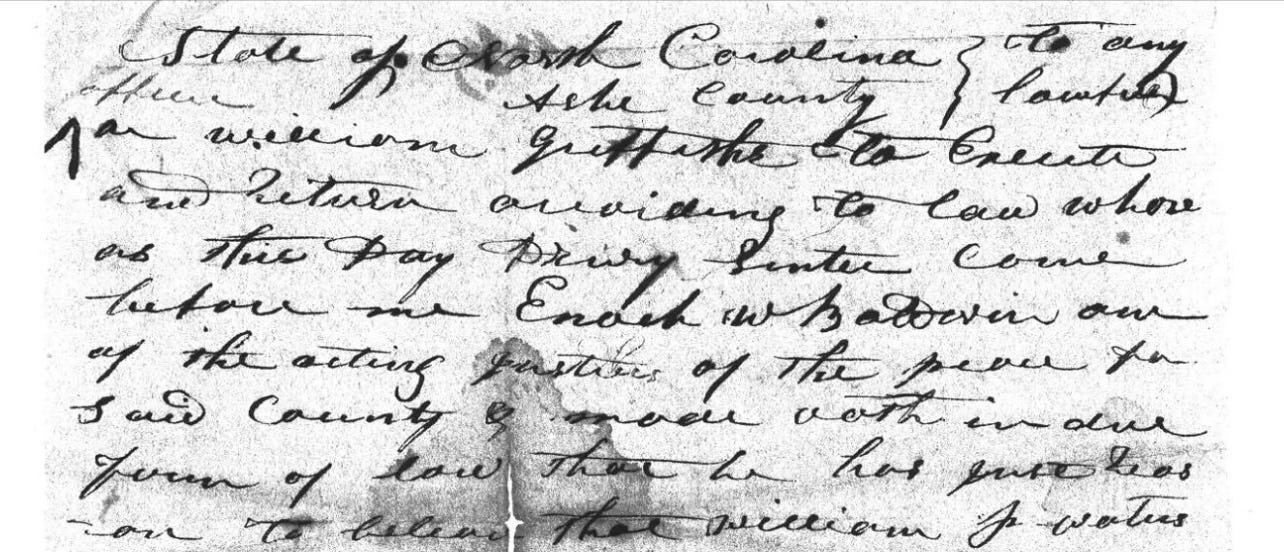 State of North Carolina } to any
officer Ashe County } lawful
or william Griffithe to Execute
and Return according to law whare
as this Day Drury Senter Come
before me Enoch W Baldwin one
of the acting Justices of the peace for
Said County & made oath in due
form of law that he has just Reas
-on to beleave that william P waters